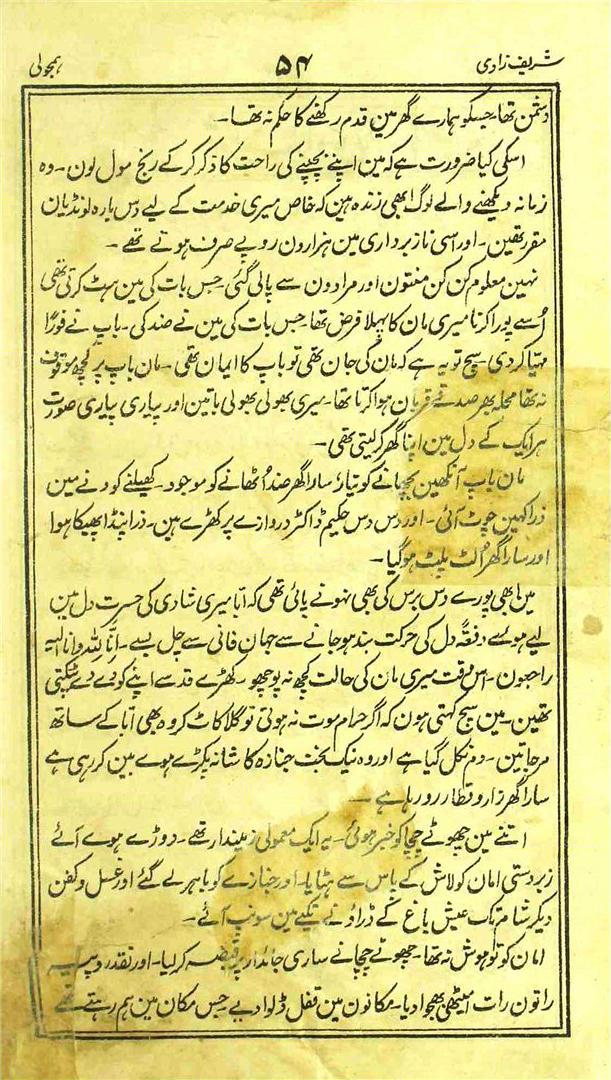 شریف زادی ۵۴ ہمجولی
دشمن تھا۔ جسکو ہمارے گھر مین قدم رکھنے کا حکم نہ تھا۔
اسکی کیا ضرورت ہے کہ مین اپنے بچپنے کی راحت کا ذکر کرکے رنج مول لون۔ وہ
زمانہ دیکھنے والے لوگ ابھی زندہ ہین کہ خاص میری خدمت کے لیے دس بارہ لونڈیان
مقرر تھین۔ اور اسی ناز برداری مین ہزارون روپے صرف ہوتے تھے۔
نہین معلوم کن کن منتون اور مرادون سے پالی گئی۔ جس بات کی مین ہٹ کرتی تھی
اُسے پورا کرنا میری مان کا پہلا فرض تھا۔ جس بات کی مین نے ضد کی۔ باپ نے فوراً
مہیّا کردی۔ سچ تو یہ ہے کہ مان کی جان تھی تو باپ کا ایمان تھی۔ مان باپ پر کچھ موقوف
نہ تھا محلہ بھر صدقے قربان ہوا کرتا تھا۔ میری بھولی بھولی باتین اور پیاری پیاری صورت
ہر ایک کے دل مین اپنا گھر کرلیتی تھی۔
مان باپ آنکھین بچھانے کو تیار۔ سارا گھر ضد اُٹھانے کو موجود۔ کھیلنے کودنے مین
ذرا کہین چوٹ آئی۔ اور دس دس حکیم ڈاکٹر دروازے پر کھڑے ہین۔ ذرا پنڈا پھیکا ہوا
اور سارا گھر اُلٹ پلٹ ہوگیا۔
مین ابھی پورے دس برس کی بھی نہونے پائی تھی کہ ابا میری شادی کی حسرت دل مین
لیے ہوے دفعۃً دل کی حرکت بند ہو جانے سے جہان فانی سے چل بسے۔ انّا للہ و انا الیہ
راجعون۔ اس وقت میری مان کی حالت کچھ نہ پوچھو۔ کھڑے قد سے اپنے کو دے دے پٹکتی
تھین۔ مین سچ کہتی ہون کہ اگر حرام موت نہ ہوتی تو گلا کاٹ کر وہ بھی ابا کے ساتھ
مرجاتین۔ دم نکل گیا ہے اور وہ نیک بخت جنازہ کا شانہ پکڑے ہوے بین کررہی ہے
سارا گھر زار و قطار رو رہا ہے۔
اتنے مین چھوٹے چچا کو خبر ہوئی۔ یہ ایک معمولی زمیندار تھے۔ دوڑے ہوے آئے
زبردستی امان کو لاش کے پاس سے ہٹایا۔ اور جنازے کو باہر لے گئے اور غسل و کفن
دیکر شام تک عیش باغ کے ڈراونے تکیے مین سونپ آئے۔
امان کو تو ہوش نہ تھا۔ چھوٹے چچا نے ساری جائداد پر قبضہ کرلیا۔ اور نقد روپیہ
راتون رات امیٹھی بھجوا دیا۔ مکانون مین قفل ڈلوا دیے۔ جس مکان مین ہم رہتے تھے